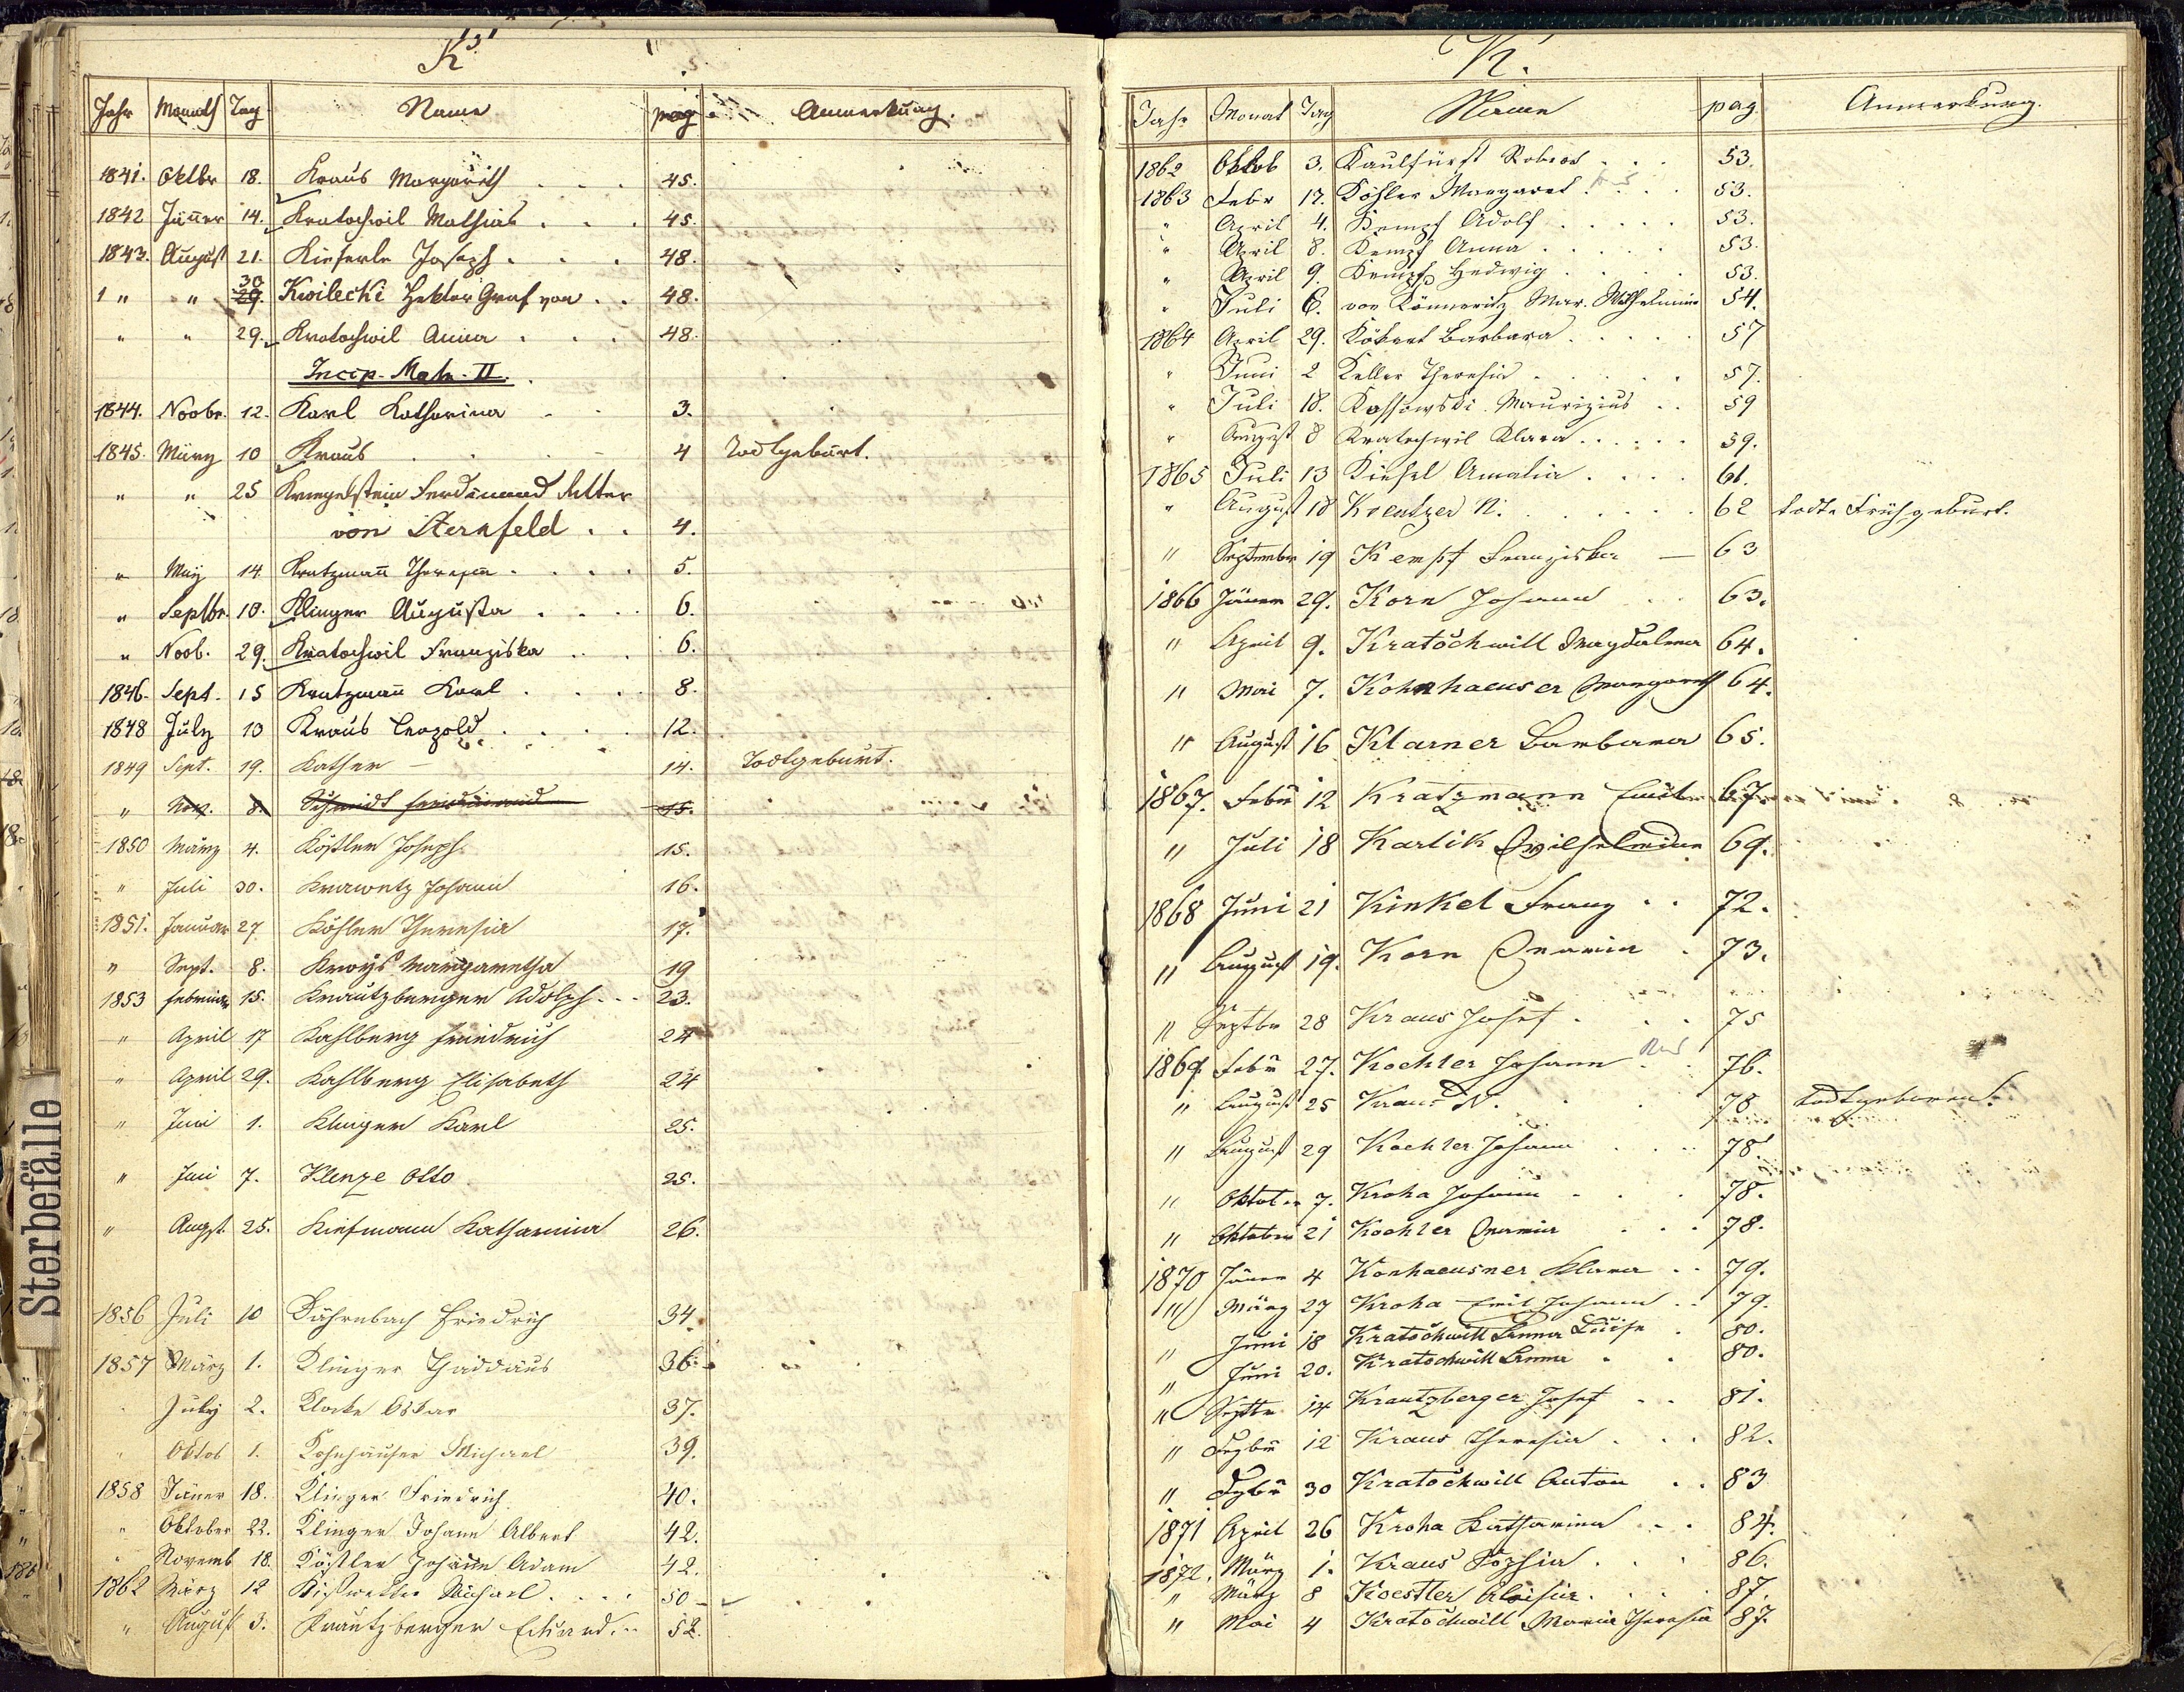 K
Jahr Monath Tag Name pag. Anmerkung.
1841. Oktbr 18. Kraus Margareth . . . 45.
1842 Jänner 14. Kratochwil Mathias . . . 45.
1843. August 21. Kieferle Joseph . . . 48.
30
1 " " 29. Kwilecki Hektor Graf von . . 48.
" " 29. Kratochwil Anna . . . 48.
Incip. Matr. II.
1844. Novbr. 12. Karl Katharina 3.
1845. März 10 Kraus 4 Todtgeburt.
" " 25 Kriegelstein Ferdinand Ritter
von Sternfeld . . 4.
" May 14. Kratzmann Theresia . . . . 5.
" Septbr. 10. Klinger Augusta . . . 6.
" Novb. 29. Kratochwil Franziska . . . 6.
1846. Sept. 15 Kratzmann Karl . . . 8.
1848 July 10 Kraus Leopold . . . . 12.
1849 Sept. 19. Kather — 14. Todtgeburt.
" Nov. 8. Schmidt Ferdinand 15.
1850 März 4. Köstler Joseph 15.
" Juli 30. Krawetz Johann 16.
1851. Januar 27 Köhler Theresia 17.
" Sept. 8. Kroys Margaretha 19
1853 Februar 15. Krautzberger Adolph . . . 23.
" April 17 Kahlberg Friedrich 24
" April 29. Kahlberg Elisabeth 24
" Juni 1. Klinger Karl 25.
" Juni 7. Klenze Otto 25.
" Augst. 25. Katharina 26.
1856 Juli 10 Friedrich 34.
1857 März 1. Klinger Thaddäus 36.
July 2. Klocke Oskar 37.
" Oktob 1. Kohnhäuser Michael 39.
1858 Jäner 18. Klinger Friedrich 40.
" Oktober 22. Klinger Johann Albert 42.
" Novemb 18. Köstler Johann Adam 42.
1862 März 12 Michael . . . . 50
" August 3. Krautzberger Eduard . . 52.
Sterbefälle
K.
Jahr Monat Tag Name pag. Anmerkung.
1862 Oktob 3. Kaulfürst Robert . . . 53.
1863 Febr 17. Köhler Margaret . . . . 53.
" April 4. Kempf Adolf . . . . . 53.
" April 8. Kempf Anna . . . . . 53.
" April 9. Kempf Hedwig . . . . 53.
" Juli 6. von Könneritz Mar. Wilhelmine 54.
1864 April 29. Barbara . . . . . 57
" Juni 2 Keller Theresia . . . . . 57.
" Juli 18. Kossowski Maurizius . . 59
" August 8 Kratochwil Klara . . . . . 59.
1865 Juli 13 Kiesel Amalia . . . . 61.
" August 18 Kreutzer N. . . . . . 62 todte Frühgeburt.
" September 19 Kempf Franziska — 63
1866 Jänner 29. Korn Johann . . 63.
" April 9. Kratochwill Magdalena 64.
" Mai 7. Kohnhaeuser Margareth 64.
" August 16 Klarner Barbara 65.
1867. Febr 12 Kratzmann Emilie 67.
" Juli 18 Karlik Wilhelmine 69.
1868 Juni 21 Kinkel Franz . . 72.
" August 19. Korn Maria . 73.
" Septbr 28 Kraus Josef . . . 75
1869. Febr 27. Koehler Johann . . 76.
" August 25 Kraus N. . . 78 todtgeboren.
" August 29 Koehler Johann . . . 78.
" Oktober 7. Kroha Johann . . . 78.
" Oktober 21 Koehler Maria . . . 78.
1870 Jänner 4 Konhaeusner Klara . . 79.
" März 27 Kroha Emil Johann . . 79.
" Juni 18 Kratochwill Anna Luise . 80.
" Juni 20. Kratochwill Anna . . 80.
" Septbr 14 Krautzberger Josef . . 81.
" 12 Kraus Theresia . . . 82.
" 30 Kratochwill Anton . . 83
1871 April 26 Kroha Katharina . . . 84.
1872. März 1. Kraus Sophia . . . 86.
" März 8 Koestler Aloisia . . . . 87.
" Mai 4 Kratochwill Maria Theresia 87.